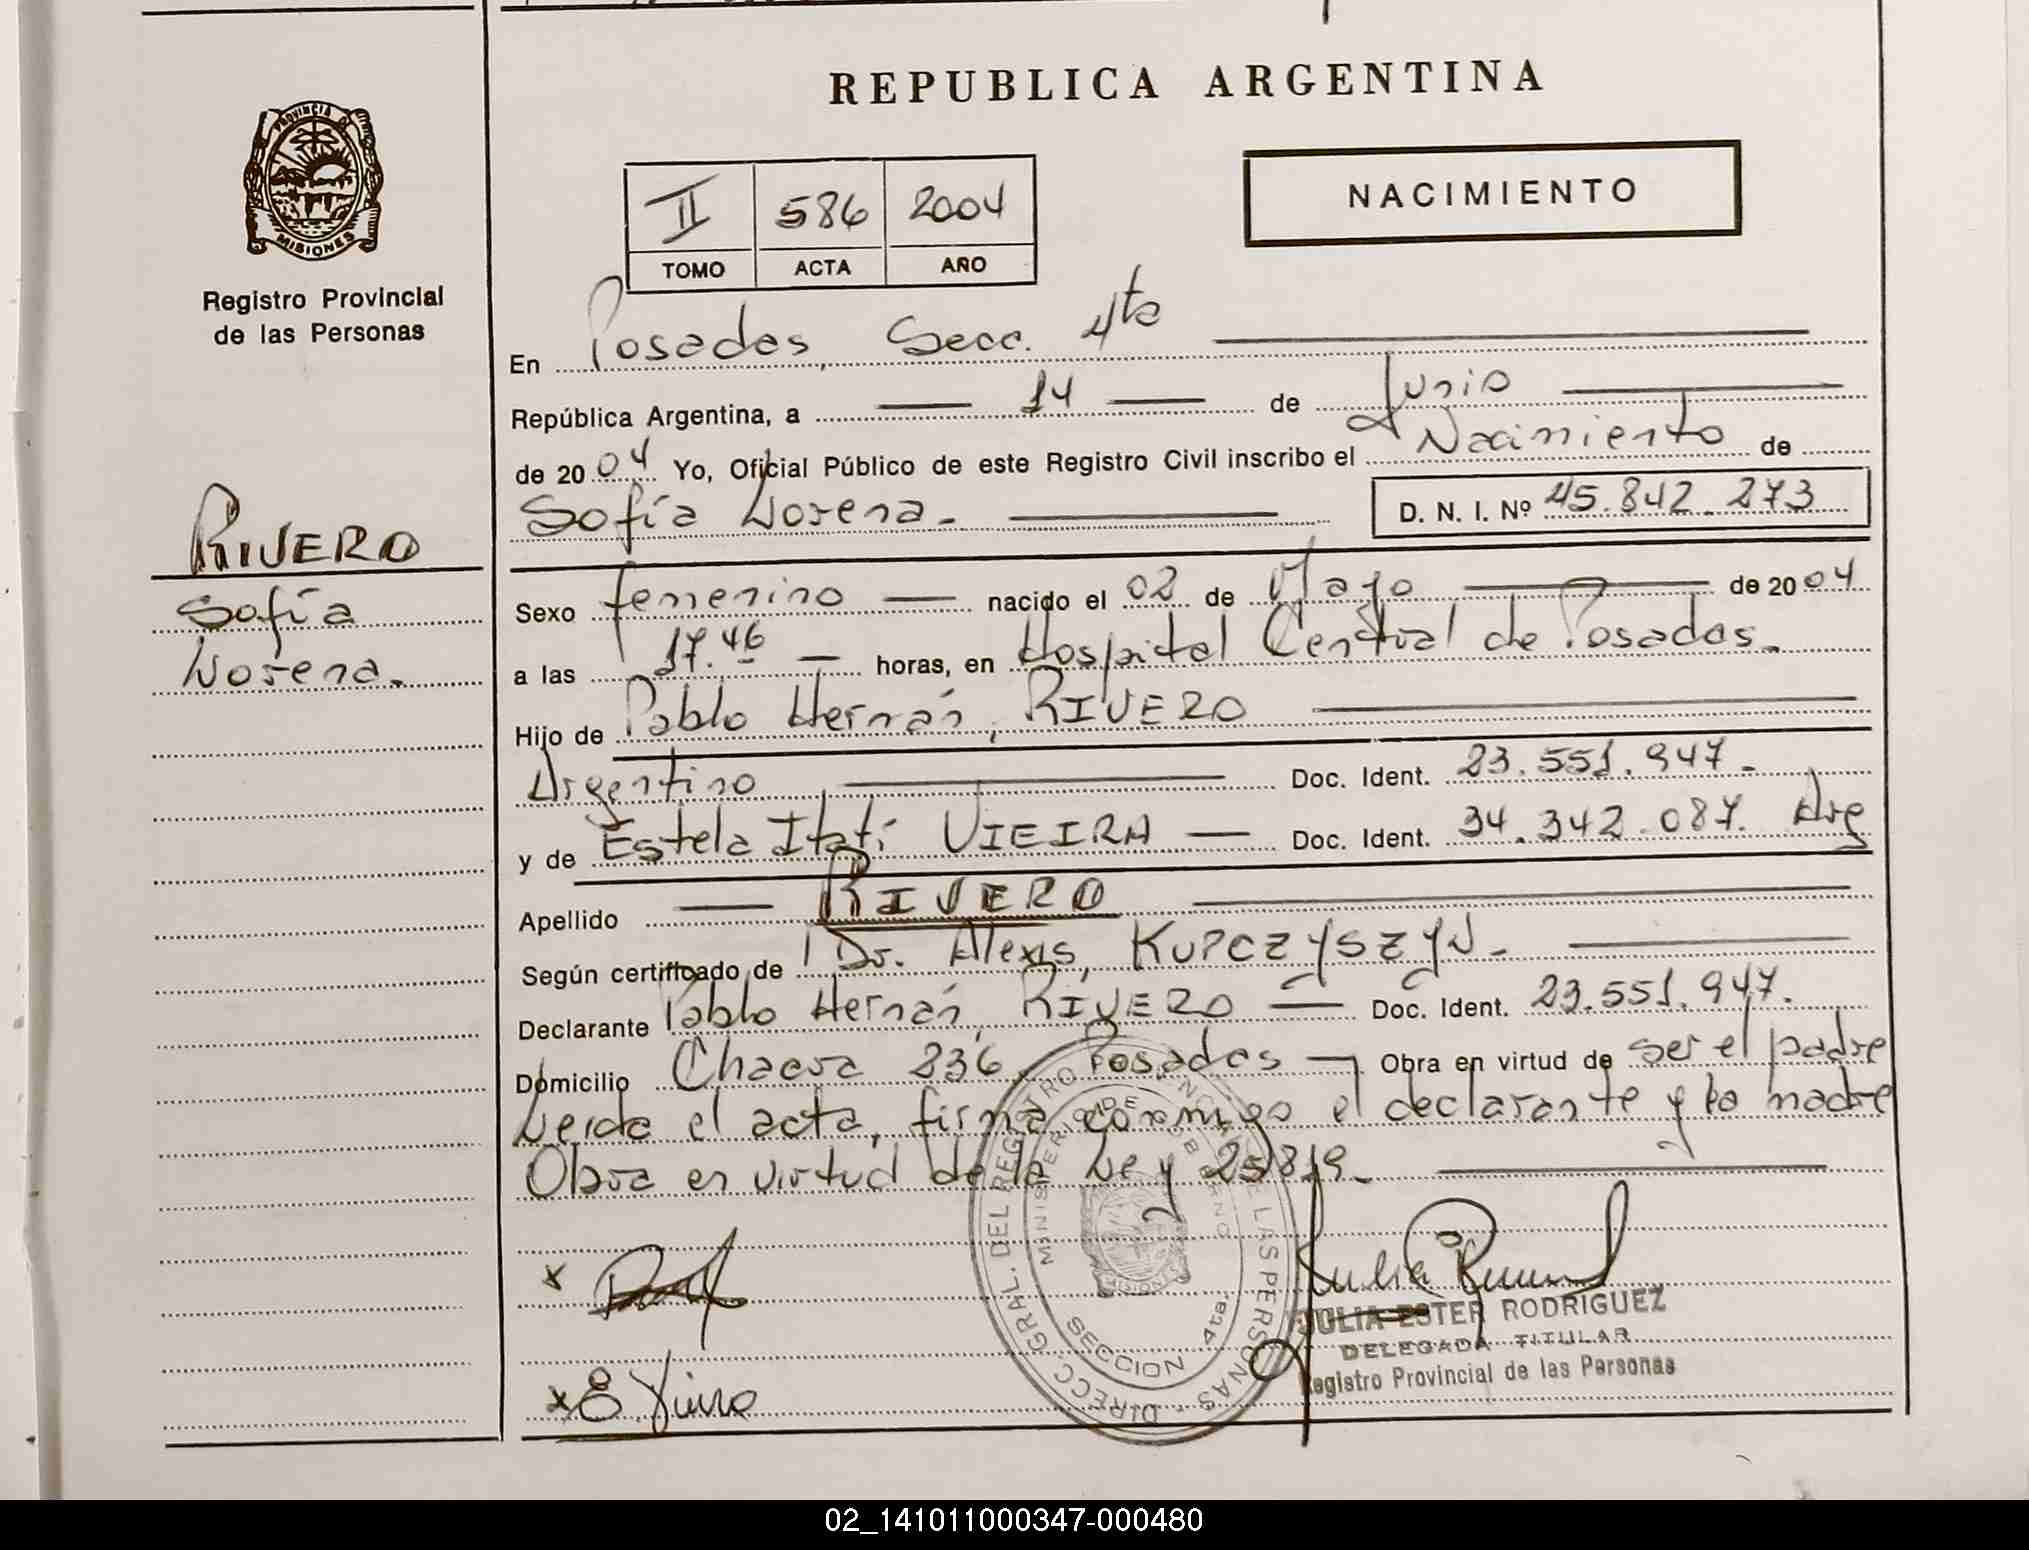 REPUBLICA ARGENTINA
PROVINCIA DE
MISIONES
Registro Provincial
de las Personas
NACIMIENTO
II 586 2004
TOMO ACTA AÑO
En Posadas, Secc. 4ta
República Argentina, a 14 de Junio
de 2004 Yo, Oficial Público de este Registro Civil inscribo el Nacimiento de
Sofía Lorena.
D. N. I. Nº 45.842.273
RIVERO
Sofía
Lorena.
Sexo femenino nacido el 02 de Mayo de 2004
a las 17.46 horas, en Hospital Central de Posadas.
Hijo de Pablo Hernán, RIVERO
Argentino Doc. Ident. 23.551.947.
y de Estela Itatí VIEIRA Doc. Ident. 34.342.087. Arg
Apellido RIVERO
Según certificado de Dr. Alexis, KUPCZYSZYN.
Declarante Pablo Hernán, RIVERO Doc. Ident. 23.551.947.
Domicilio Chacra 236, Posadas Obra en virtud de ser el padre
Leída el acta, firma conmigo el declarante y la madre
Obra en virtud de la Ley 25819.
DIRECC GRAL. DEL REGISTRO PROVINCIAL DE LAS PERSONAS
MINISTERIO DE GOBIERNO
MISIONES
SECCION 4ta.
JULIA ESTER RODRIGUEZ
DELEGADA TITULAR
Registro Provincial de las Personas
02_141011000347-000480